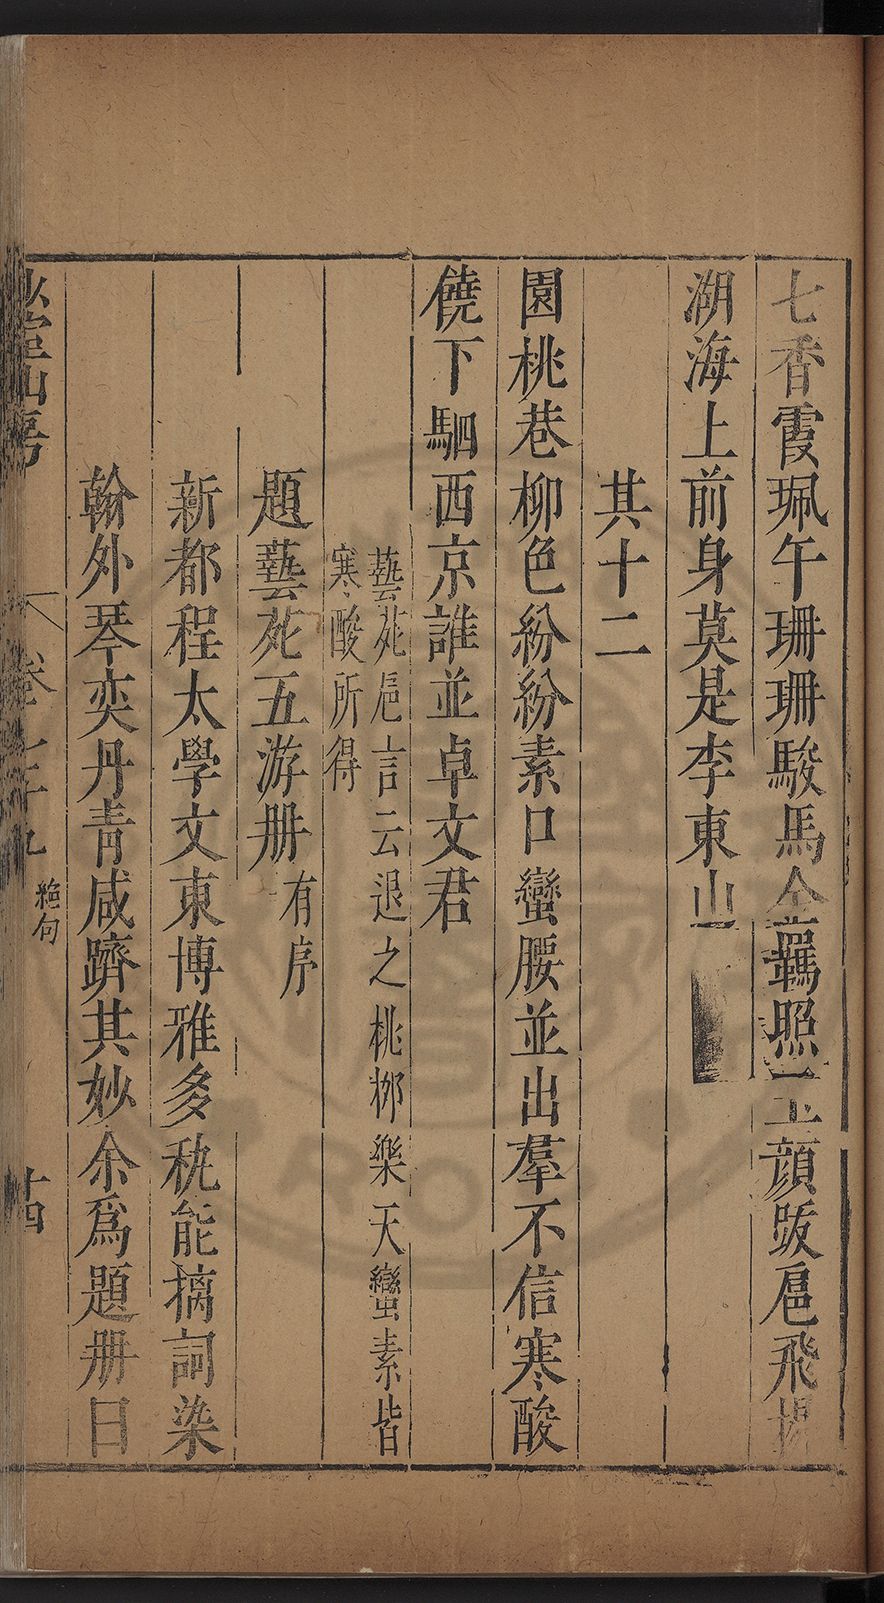 七香霞珮午珊珊駿馬金羈照玉顔跋扈飛揚
湖海上前身莫是李東山
其十二
園桃巷柳色紛紛素口蠻腰並出羣不信寒酸
饒下駟西京誰並卓文君
藝苑巵言云退之桃柳樂天蠻素皆
寒酸所得
題藝苑五游册有序
新都程太學文東博雅多秇能摛詞染
翰外琴奕丹青咸躋其妙余爲題册曰
山房
卷七十九
絶句
十四